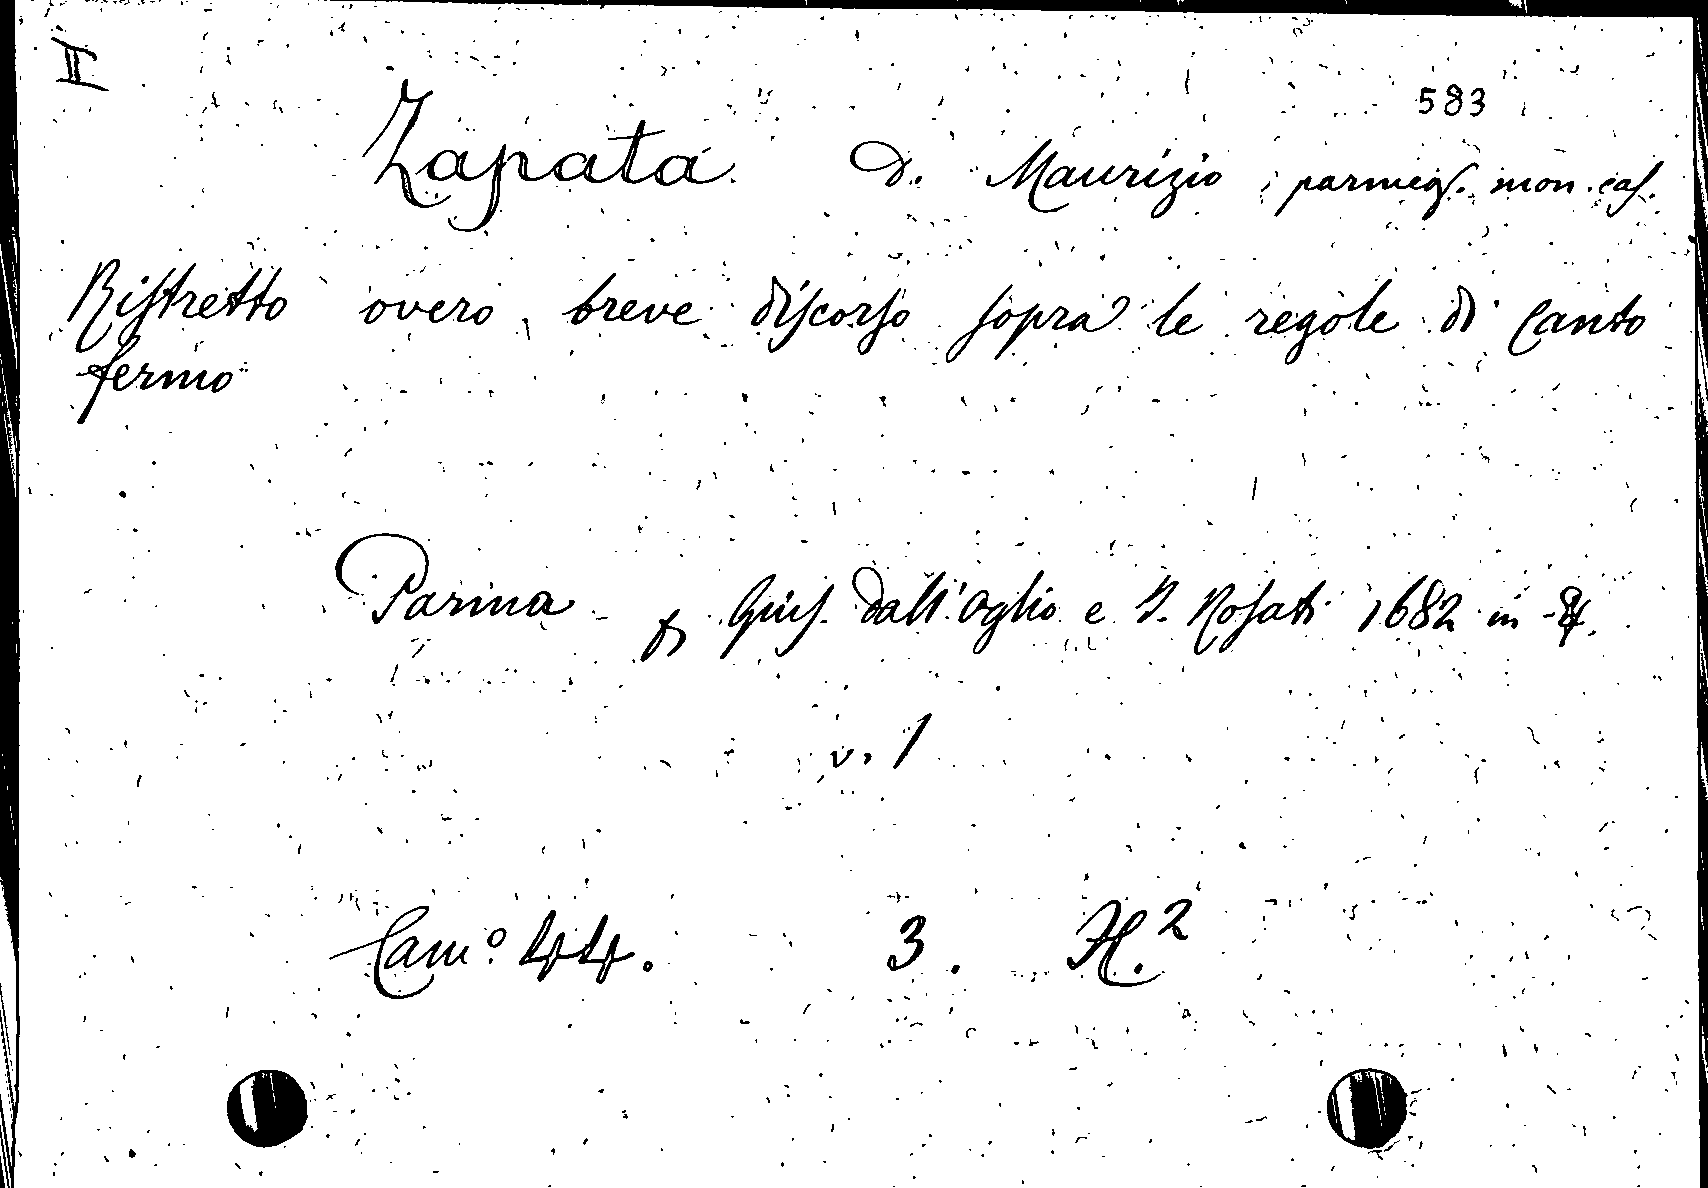 II
583
Zapata D. Maurizio parmeg. mon. cas.
Ristretto overo breve discorso sopra le regole di Canto
fermo
Parma Gius. dall'Oglio e I. Rosati 1682 in 4.
v. 1
Cam.º 44. 3. H.2